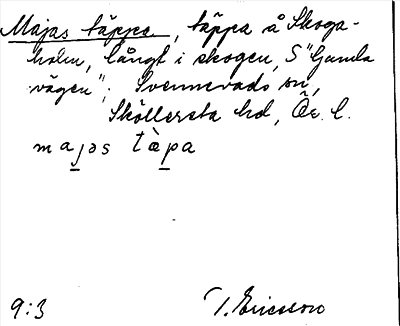 Majas täppa, täppa å Skoga-
holm, långt i skogen, S "Gamla
vägen"; Svennevads sn,
Sköllersta hd, Ör. l.
majəs tàpa
9:3 T. Ericsson